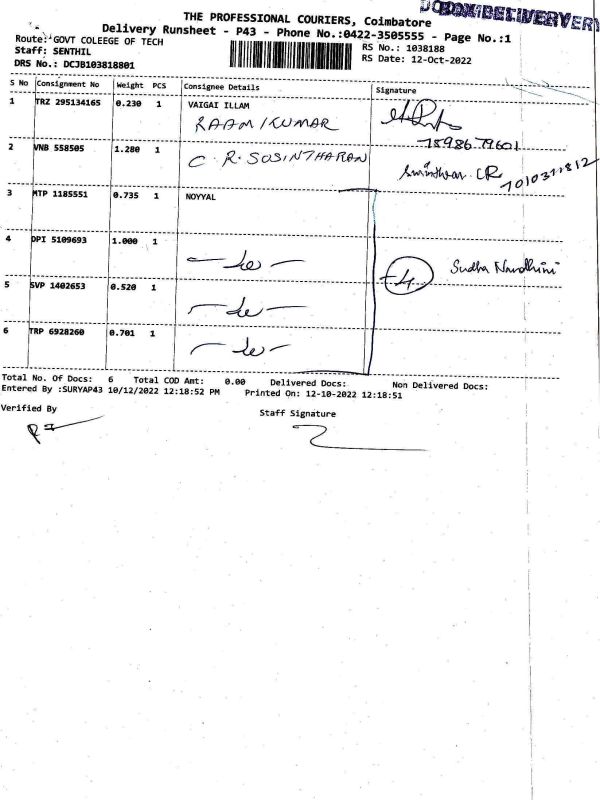 BOX DELIVERY
THE PROFESSIONAL COURIERS, Coimbatore
Delivery Runsheet - P43 - Phone No.:0422-3505555 - Page No.:1
Route: GOVT COLEEGE OF TECH
RS No.: 1038188
Staff: SENTHIL
RS Date: 12-Oct-2022
DRS No.: DCJB103818801
S No Consignment No Weight PCS Consignee Details Signature
1 TRZ 295134165 0.230 1 VAIGAI ILLAM
RAAMKUMAR
2 VNB 558505 1.280 1 C.R. SOSINTHARAN
CR 7010311812
3 MTP 1185551 0.735 1 NOYYAL
4 DPI 5109693 1.000 1
4 Sudha Nandhini
5 SVP 1402653 0.520 1
6 TRP 6928260 0.701 1
Total No. Of Docs: 6 Total COD Amt: 0.00 Delivered Docs: Non Delivered Docs:
Entered By :SURYAP43 10/12/2022 12:18:52 PM Printed On: 12-10-2022 12:18:51
Verified By
Staff Signature